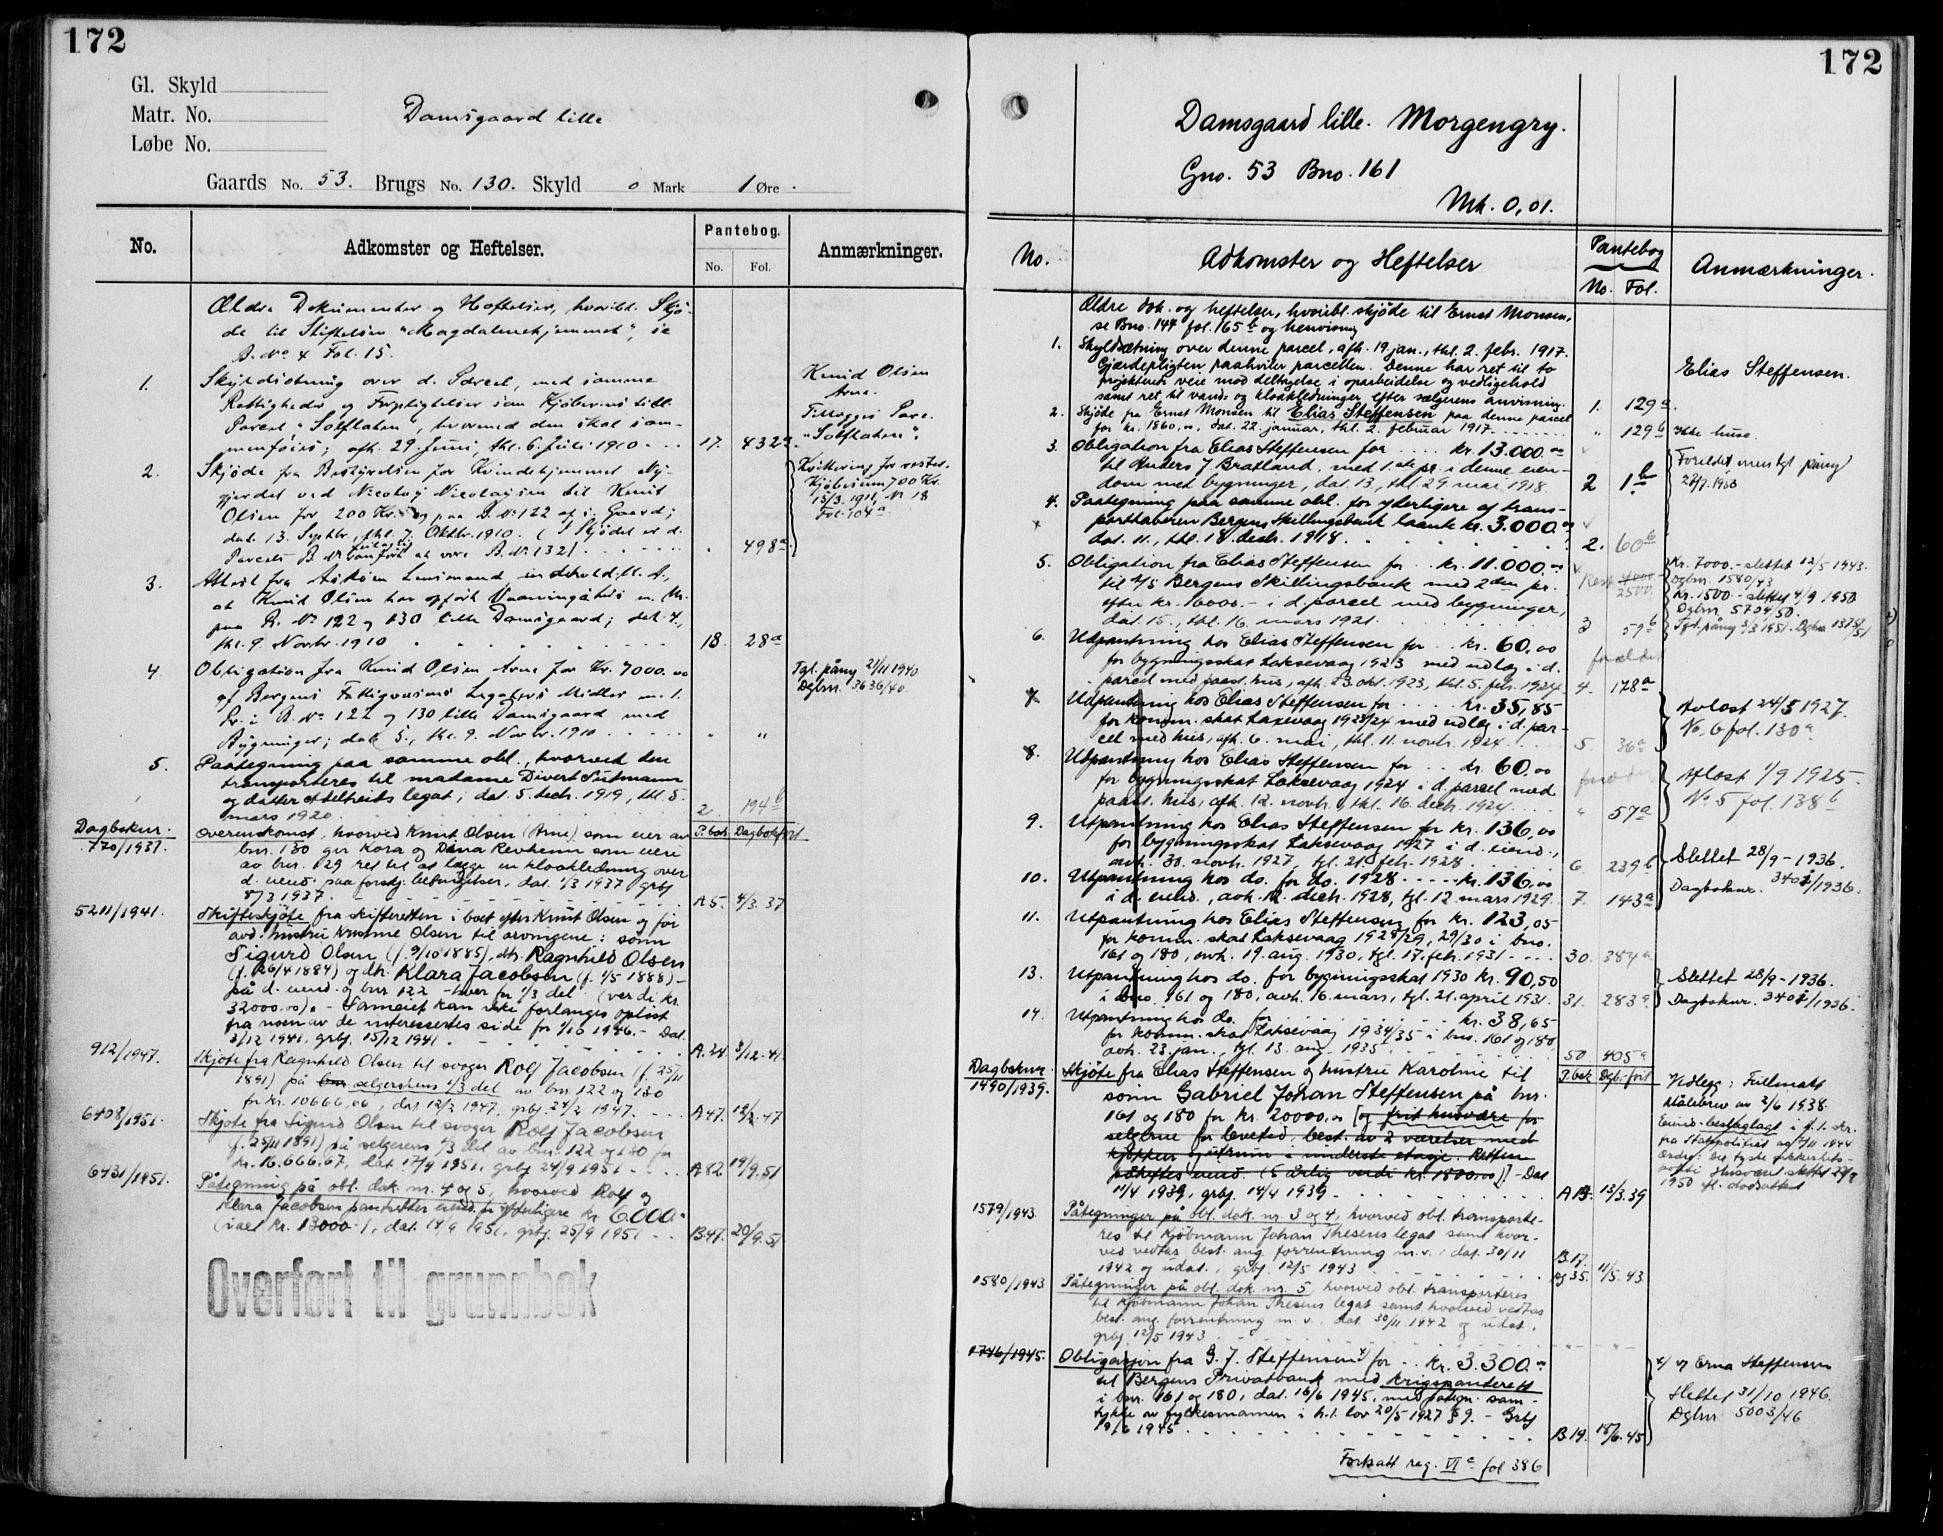 172
Gl. Skyld
Matr. No.
Løbe No.
Damsgaard lille
Gaards No. 53. Brugs No. 130. Skyld 0 Mark 1 Øre.
No.
Adkomster og Heftelser.
Pantebog.
No. Fol.
Anmærkninger.
Ældre Dokumenter og Heftelser, hvoribl. Skjø-
de til Stiftelsen "Magdalenehjemmet", se
B. No 4 Fol. 15.
1. Skyldsætning over d. Parcel, med samme
Rettigheder og Forpligtelser som Kjøberens tidl.
Parcel "Solflaten", hvormed den skal sam-
menføies; afh. 29. Juni, thl. 6. Juli 1910 17. 432a
Knud Olsen
Arna.
Tillægges Parc.
"Solflaten".
2. Skjøde fra Bestyrelsen for Kvindehjemmet Ny-
gjerdet ved Nicolay Nicolaysen til Knut
Olsen for 200 Kr. paa B. No 122 af s. Gaard;
dat. 13. Septbr., thl. 7. Oktbr. 1910. (I Skjødet er d.
Parcels B. No feilagtig anført at være B. No 132) " 498a
Kvittering for rester.
Kjøbesum 700 Kr.
15/3. 1911, N. 18
Fol. 104a
3. Attest fra Askøen Lensmand indehold. bl. A.,
at Knud Olsen har opført Vaaningshus m. M.
paa B. No 122 og 130 lille Damsgaard; dat. 4.,
thl. 9. Novbr. 1910 18. 28a
4. Obligation fra Knud Olsen Arne for Kr. 7000.00
af Bergens Fattigvæsens Legaters Midler m. 1.
Pr. i B. No 122 og 130 lille Damsgaard med
Bygninger; dat. 5., thl. 9. Novbr. 1910 " "
Tgl. påny 21/11 1940
Dgbnr. 3636/40.
5. Paategning paa samme obl., hvorved den
transporteres til madame Divert Sutmann
og datter Adelheids legat; dat. 5. decb. 1919, thl. 5.
mars 1920. 2 194b
Dagboknr. P.bok Dagbokført
770/1937. Overenskomst, hvorved Knut Olsen (Arne) som eier av
bnr. 130 gir Kora og Dina Revheim som eiere
av bnr. 129 ret til at lægge en kloakledning over
d. eiend. paa forskj. betingelser, dat. 1/3 1937, grbf.
8/3 1937. A 5. 4/3. 37
5211/1941. Skifteskjøte fra skifteretten i boet efter Knut Olsen og før
avd. hustru Kristine Olsen til arvingene: sønn
Sigurd Olsen (f. 9/10 1885), dtr. Ragnhild Olsen
(f. 26/4 1884) og dtr. Klara Jacobsen (f. 4/5 1888) -
på d. eiend. og bnr 122 - hver for 1/3 del (verdi kr.
32000.00). - Sameiet kan ikke forlanges opløst
fra noen av de interessertes side før 1/10 1946. - Dat.
3/12 1941, grbf. 15/12 1941. A. 24. 3/12-41
912/1947. Skjøte fra Ragnhild Olsen til svoger Rolf Jacobsen (f. 25/11
1891) på bnr. selgerskens 1/3 del av bnr. 122 og 130
for kr. 10666,66, dat. 12/2 1947, grbf. 24/2 1947. A47. 18/2-47
6408/1951. Skjøte fra Sigurd Olsen til svoger Rolf Jacobsen
(f. 25/11 1891) på selgerens 1/3 del av bnr. 122 og 130 for
kr. 16.666,67, dat. 17/9 1951, grbf. 24/9 1951 A82 19/9.51
6431/1951. Påtegning på obl. dok. nr. 4 og 5, hvorved Rolf og
Klara Jacobsen pantsetter eiend. for ytterligere kr. 6.000.-
(i alt kr. 13000-), dat. 14/9 1951, grbf. 25/9 1951 B.47. 20/9.51
Overført til grunnbok
172
Damsgaard lille. Morgengry.
Gno. 53 Bno. 161
Mk. 0,01.
No.
Adkomster og Heftelser
Pantebog
No. Fol.
Anmærkninger.
Ældre dok. og heftelser, hvoribl. skjøde til Ernst Monsen,
se Bno. 144 fol. 165b og henvisning
1. Skyldsætning over denne parcel, afh. 19. jan., thl. 2. febr. 1917.
Gjærdepligten paahviler parcellen. Denne har ret til to
projekterede veie mod deltagelse i oparbeidelse og vedligehold
samt ret til vands og kloakledninger efter sælgerens anvisning. 1. 129a
Elias Steffensen.
2. Skjøde fra Ernst Monsen til Elias Steffensen paa denne parcel
for kr. 1860,00, dat. 22. januar, thl. 2. februar 1917 " 129b
Ikke huse.
3. Obligation fra Elias Steffensen for kr. 13.000.00
til Anders J Bratland, med 1.ste pr. i denne eien-
dom med bygninger, dat. 13., thl. 29. mai 1918. 2 1b
Foreldet, men tgl. påny
4. Paategning paa samme obl. for yderligere af trans-
porthaveren Bergens Skillingsbank laante kr. 3.000.00
dat. 11., thl. 18. decb. 1918. 2. 60b
5. Obligation fra Elias Steffensen for kr. 11.000.00
til A/S Bergens Skillingsbank med 2den pr.
efter kr. 16000.- i d. parcel med bygninger,
dat. 15., thl. 16. mars 1921. 3 59b
Rest 4000 2500
Kr. 7000.- slettet 12/5 1943.
Dgbnr. 1580/43
Kr. 1500.- slettet 4/9 1950
Dgbnr. 5704/50.
6. Utpantning hos Elias Steffensen for kr. 60,00
for bygningsskat Laksevaag 1923 med utlæg i d.
parcel med paast. hus, afh. 23. okt. 1923, thl. 5. feb. 1924 4. 178a
forældet
7. Utpantning hos Elias Steffensen for kr. 35,85
for komm. skat Laxevaag 1923/24 med utlæg i d. par-
cel med hus, afh. 6. mai, thl. 11. novbr. 1924 5. 36a
Avlost 24/5 1927.
No. 6 fol. 130a
8. Utpantning hos Elias Steffensen for kr. 60.00
for bygningsskat Laksevaag 1924 i d. parcel med
paast. hus, afh. 12. novb., thl. 16. decb. 1924. " 57a
Avlost 1/9 1925.
No 5 fol. 138b
9. Utpantning hos Elias Steffensen for kr. 136,00
for bygningsskat Laksevaag 1927 i d. eiend.,
avh. 30. novb. 1927, tgl. 21. feb. 1928. 6. 239b
10. Utpantning hos do. for do. 1928 kr. 136,00
i d. eiend., avh. 12. decb. 1928, tgl. 12 mars 1929. 7. 143a
Slettet 28/9-1936.
Dagboknr. 3401/1936.
11. Utpantning hos Elias Steffensen for kr. 123,05
for komm. skat Laksevaag 1928/29, 29/30 i bno.
161 og 180, avh. 19. aug. 1930, tgl. 17. feb. 1931 30. 384a
13. Utpantning hos do. for bygningsskat 1930 kr. 90,50
i bno. 161 og 180, avh. 16. mars, tgl. 21. april 1931. 31. 283a
Slettet 28/9-1936.
Dagboknr. 3401/1936.
14. Utpantning hos do. for kr. 38,65
for komm. skat Laksevaag 1934/35 i bno. 161 og 180
avh. 23. jan., tgl. 13. aug. 1935. 50 405a
Dagboknr. P.bok Dgb.-ført
1490/1939. Skjøte fra Elias Steffensen og hustru Karoline til
sønn Gabriel Johan Steffensen på bnr.
161 og 180 for kr. 20000.00 [og fritt husvære for
selgerne for levetid, best. av 2 værelser med
kjøkken og uterum i underste etasje. Retten
påheftes eiend. (5 årlig verdi kr. 1800,00)]. - Dat
11/4 1939, grbf. 14/4 1939 A 13. 13/3.39
Vedlegg: Fullmakt
Målebrev av 2/6 1938.
Eiend. beslaglagt i f.t. kr.
fra Statspolitiet av 7/11 1944
1579/1943. Påtegninger på obl. dok. nr. 3 og 4, hvorved obl. transporte-
res til Kjøbmann Johan Thesens legat samt hvor-
ved vedtas best. ang. forrentning m.v., dat. 30/11
1942 og udat., grbf. 12/5 1943 B.17. og 35. 11/5.43
1580/1943 Påtegninger på obl. dok. nr. 5 hvorved obl. transporteres
til Kjøbmann Johan Thesens legat samt hvorved vedtas
best. ang. forrentning m.v., dat. 30/11 1942 og udat.,
grbf. 12/5 1943
1746/1945. Obligasjon fra G. J. Steffensen x) for kr. 3.300.00
til Bergens Privatbank med krigspanterett
i bnr. 161 og 180, dat. 16/6 1945, med påtegn. sam-
tykke av fylkesmannen i h.t. lov 20/5 1927 § 9. - Grbf
19/6 1945 B 19. 18/6.45
x) og Erna Steffensen
Slettet 31/10 1946.
Dgbnr. 5003/46
Fortsatt reg. VI c fol 386